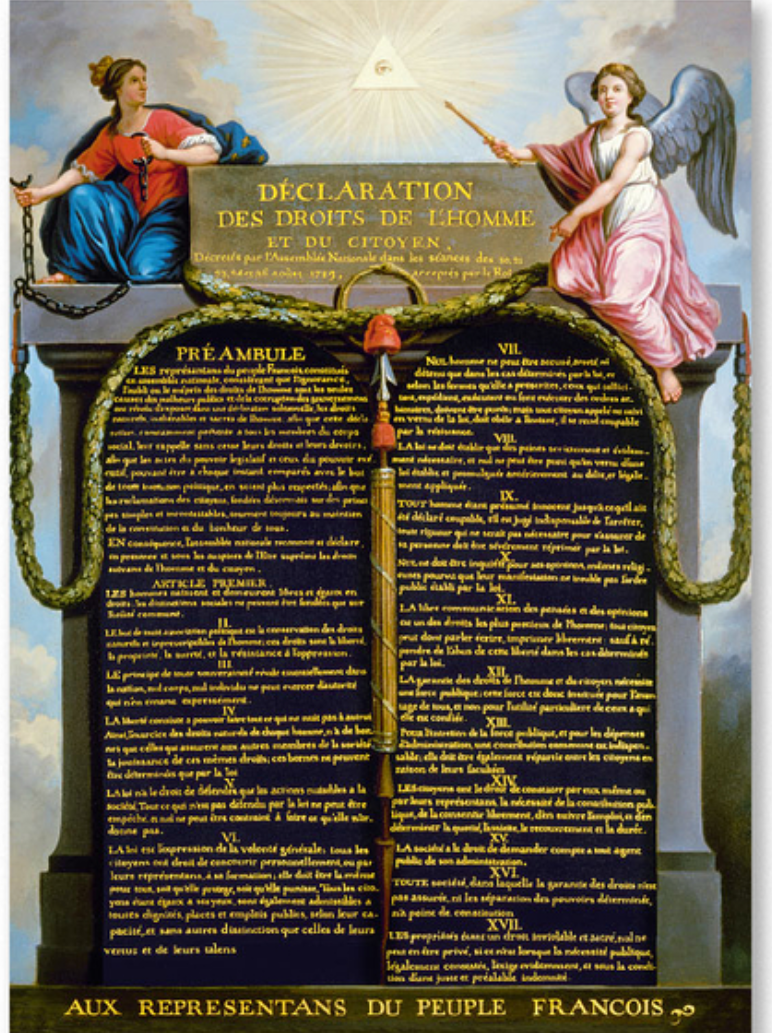 DÉCLARATION
DES DROITS DE L'HOMME
ET DU CITOYEN,
Décretés par l'Assemblée Nationale dans les séances des 20, 21
23, 24 et 26 août 1789, acceptés par le Roi
PRÉAMBULE
LES représentans du peuple François, constitués
en assemblée nationale, considérant que l'ignorance,
l'oubli ou le mépris des droits de l'homme sont les seules
causes des malheurs publics et de la corruption des gouvernemens
ont résolu d'exposer dans une déclaration solemnelle, les droits
naturels, inaliénables et sacrés de l'homme, afin que cette décla-
ration, constamment présente à tous les membres du corps
social, leur rappelle sans cesse leurs droits et leurs devoirs,
afin que les actes du pouvoir législatif et ceux du pouvoir exé-
cutif, pouvant être à chaque instant comparés avec le but
de toute institution politique, en soient plus respectés; afin que
les réclamations des citoyens, fondées désormais sur des princi-
pes simples et incontestables, tournent toujours au maintien
de la constitution et du bonheur de tous.
EN conséquence, l'assemblée nationale reconnoit et déclare,
en présence et sous les auspices de l'Etre suprême les droits
suivans de l'homme et du citoyen.
ARTICLE PREMIER.
LES hommes naissent et demeurent libres et égaux en
droits, les distinctions sociales ne peuvent être fondées que sur
l'utilité commune.
II.
LE but de toute association politique est la conservation des droits
naturels et imprescriptibles de l'homme; ces droits sont la liberté,
la propriété, la sureté, et la résistance à l'oppression.
III.
LE principe de toute souveraineté réside essentiellement dans
la nation, nul corps, nul individu ne peut exercer d'autorité
qui n'en émane expressément.
IV.
LA liberté consiste à pouvoir faire tout ce qui ne nuit pas à autrui
Ainsi, l'exercice des droits naturels de chaque homme, n'a de bor-
nes que celles qui assurent aux autres membres de la société
la jouissance de ces mêmes droits; ces bornes ne peuvent
être déterminées que par la loi
V.
LA loi n'a le droit de défendre que les actions nuisibles à la
société. Tout ce qui n'est pas défendu par la loi ne peut être
empêché, et nul ne peut être contraint à faire ce qu'elle n'or-
donne pas.
VI.
LA loi est l'expression de la volonté générale; tous les
citoyens ont droit de concourir personnellement, ou par
leurs représentans, à sa formation; elle doit être la même
pour tous, soit qu'elle protege, soit qu'elle punisse, Tous les cito-
yens étant égaux à ses yeux, sont également admissibles à
toutes dignités, places et emplois publics, selon leur ca-
pacité, et sans autres distinction que celles de leurs
vertus et de leurs talens
VII.
NUL homme ne peut être accusé, arreté ni
détenu que dans les cas déterminés par la loi, et
selon les formes qu'elle a prescrites, ceux qui sollicit-
ent, expédient, exécutent ou font exécuter des ordres ar-
bitraires, doivent être punis; mais tout citoyen appelé ou saisi
en vertu de la loi, doit obéir à l'instant, il se rend coupable
par la résistance.
VIII.
LA loi ne doit établir que des peines strictement et évidem-
ment nécessaire, et nul ne peut être puni qu'en vertu d'une
loi établie et promulguée antérieurement au délit, et légale-
ment appliquée.
IX.
TOUT homme étant présumé innocent jusqu'à ce qu'il ait
été déclaré coupable, s'il est jugé indispensable de l'arrêter,
toute rigueur qui ne serait pas nécessaire pour s'assurer de
sa personne doit être sévèrement réprimée par la loi.
X.
NUL ne doit être inquiété pour ses opinions, mêmes religi-
euses pourvu que leur manifestation ne trouble pas l'ordre
public établi par la loi.
XI.
LA libre communication des pensées et des opinions
est un des droits les plus précieux de l'homme; tout citoyen
peut donc parler écrire, imprimer librement: sauf à ré-
pondre de l'abus de cette liberté dans les cas déterminés
par la loi.
XII.
LA garantie des droits de l'homme et du citoyen nécessite
une force publique; cette force est donc instituée pour l'avan-
tage de tous, et non pour l'utilité particuliere de ceux a qui
elle est confiée.
XIII.
POUR l'entretien de la force publique, et pour les dépenses
d'administration, une contribution commune est indispen-
sable; elle doit être également répartie entre les citoyens en
raison de leurs facultées
XIV.
LES citoyens ont le droit de constater par eux même ou
par leurs représentans, la nécessité de la contribution pub-
lique, de la consentir librement, d'en suivre l'emploi, et d'en
déterminer la quotité, l'assiette, le recouvrement et la durée.
XV.
LA société a le droit de demander compte a tout agent
public de son administration.
XVI.
TOUTE société, dans laquelle la garantie des droits n'est
pas assurée, ni les séparation des pouvoirs déterminée,
n'a point de constitution
XVII.
LES propriétés étant un droit inviolable et sacré, nul ne
peut en être privé, si ce n'est lorsque la nécessité publique,
légalement constatée, l'exige evidemment, et sous la condi-
tion d'une juste et préalable indemnité.
AUX REPRESENTANS DU PEUPLE FRANCOIS